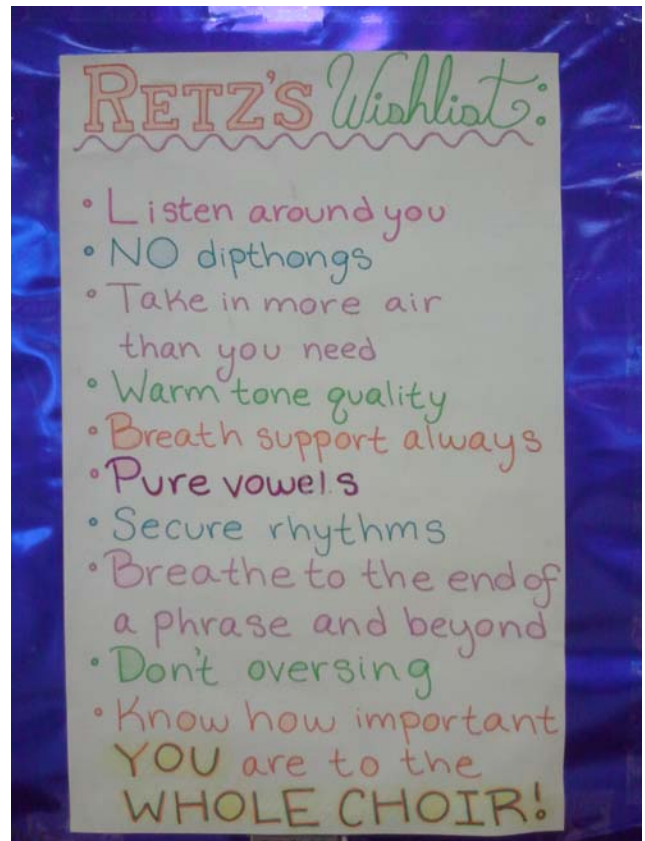 RETZ'S Wishlist:
• Listen around you
• NO dipthongs
• Take in more air
than you need
• Warm tone quality
• Breath support always
• Pure vowels
• Secure rhythms
• Breathe to the end of
a phrase and beyond
• Don't oversing
• Know how important
YOU are to the
WHOLE CHOIR!